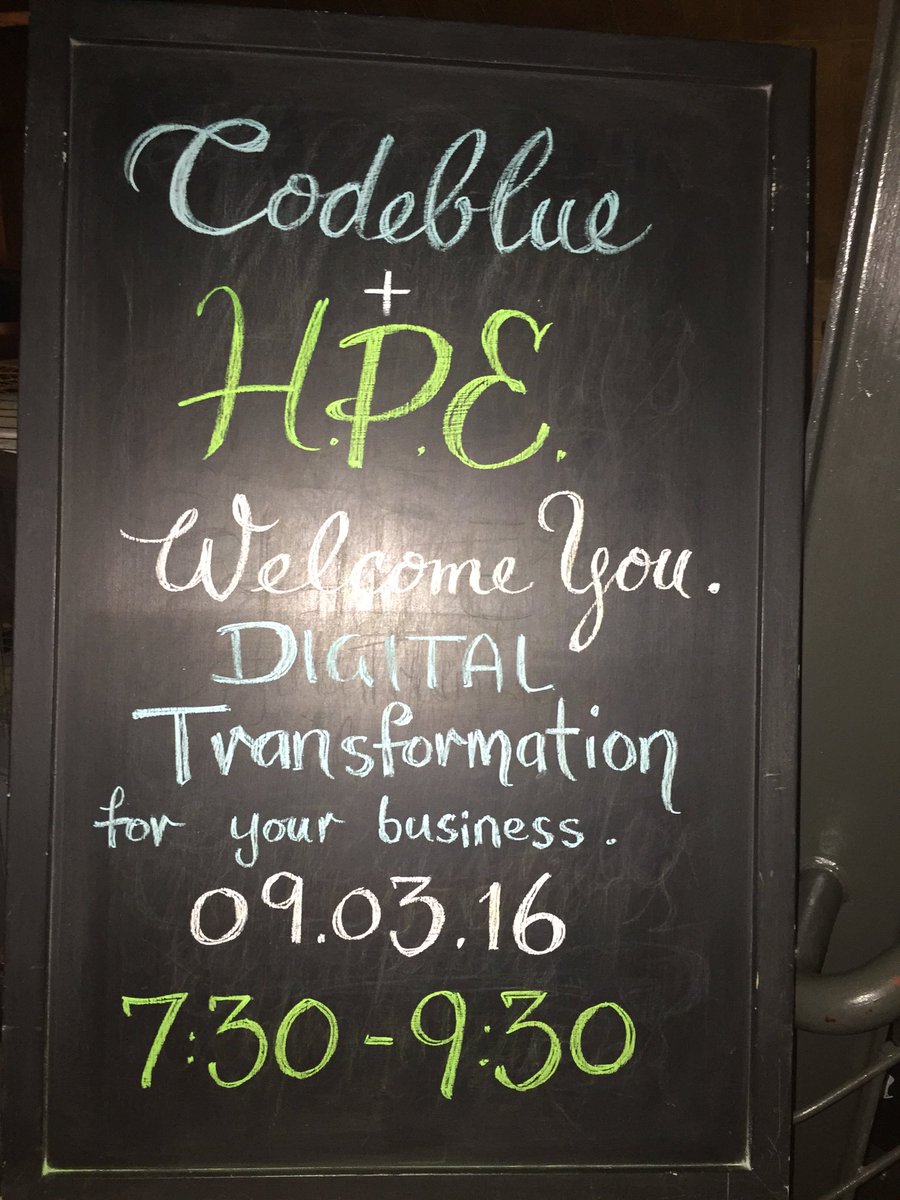 Codeblue
+
H.P.E.
Welcome You.
DIGITAL
Transformation
for your business.
09.03.16
7:30-9:30